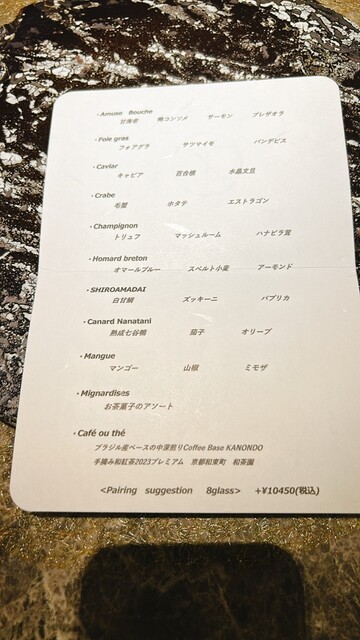 ・Amuse Bouche
甘海老 鴨コンソメ サーモン ブレザオラ
・Foie gras
フォアグラ サツマイモ パンデピス
・Caviar
キャビア 百合根 水晶文旦
・Crabe
毛蟹 ホタテ エストラゴン
・Champignon
トリュフ マッシュルーム ハナビラ茸
・Homard breton
オマールブルー スペルト小麦 アーモンド
・SHIROAMADAI
白甘鯛 ズッキーニ パプリカ
・Canard Nanatani
熟成七谷鴨 茄子 オリーブ
・Mangue
マンゴー 山椒 ミモザ
・Mignardises
お茶菓子のアソート
・Café ou thé
ブラジル産ベースの中深煎りCoffee Base KANONDO
手摘み和紅茶2023プレミアム 京都和束町 和茶園
<Pairing suggestion 8glass> +¥10450(税込)